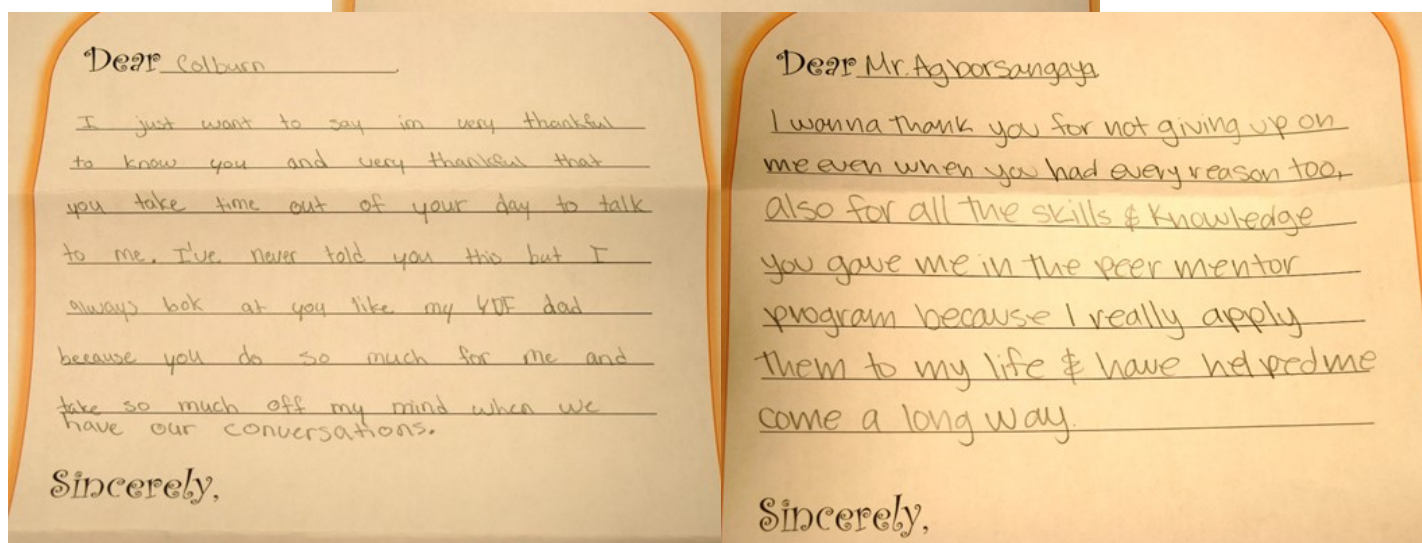 Dear Colburn
I just want to say im very thankful
to know you and very thankful that
you take time out of your day to talk
to me. I've never told you this but I
always look at you like my YDF dad
because you do so much for me and
take so much off my mind when we
have our conversations.
Sincerely,
Dear Mr. Agborsangaya
I wanna thank you for not giving up on
me even when you had every reason too,
also for all the skills & knowledge
you gave me in the peer mentor
program because I really apply
them to my life & have helped me
come a long way.
Sincerely,